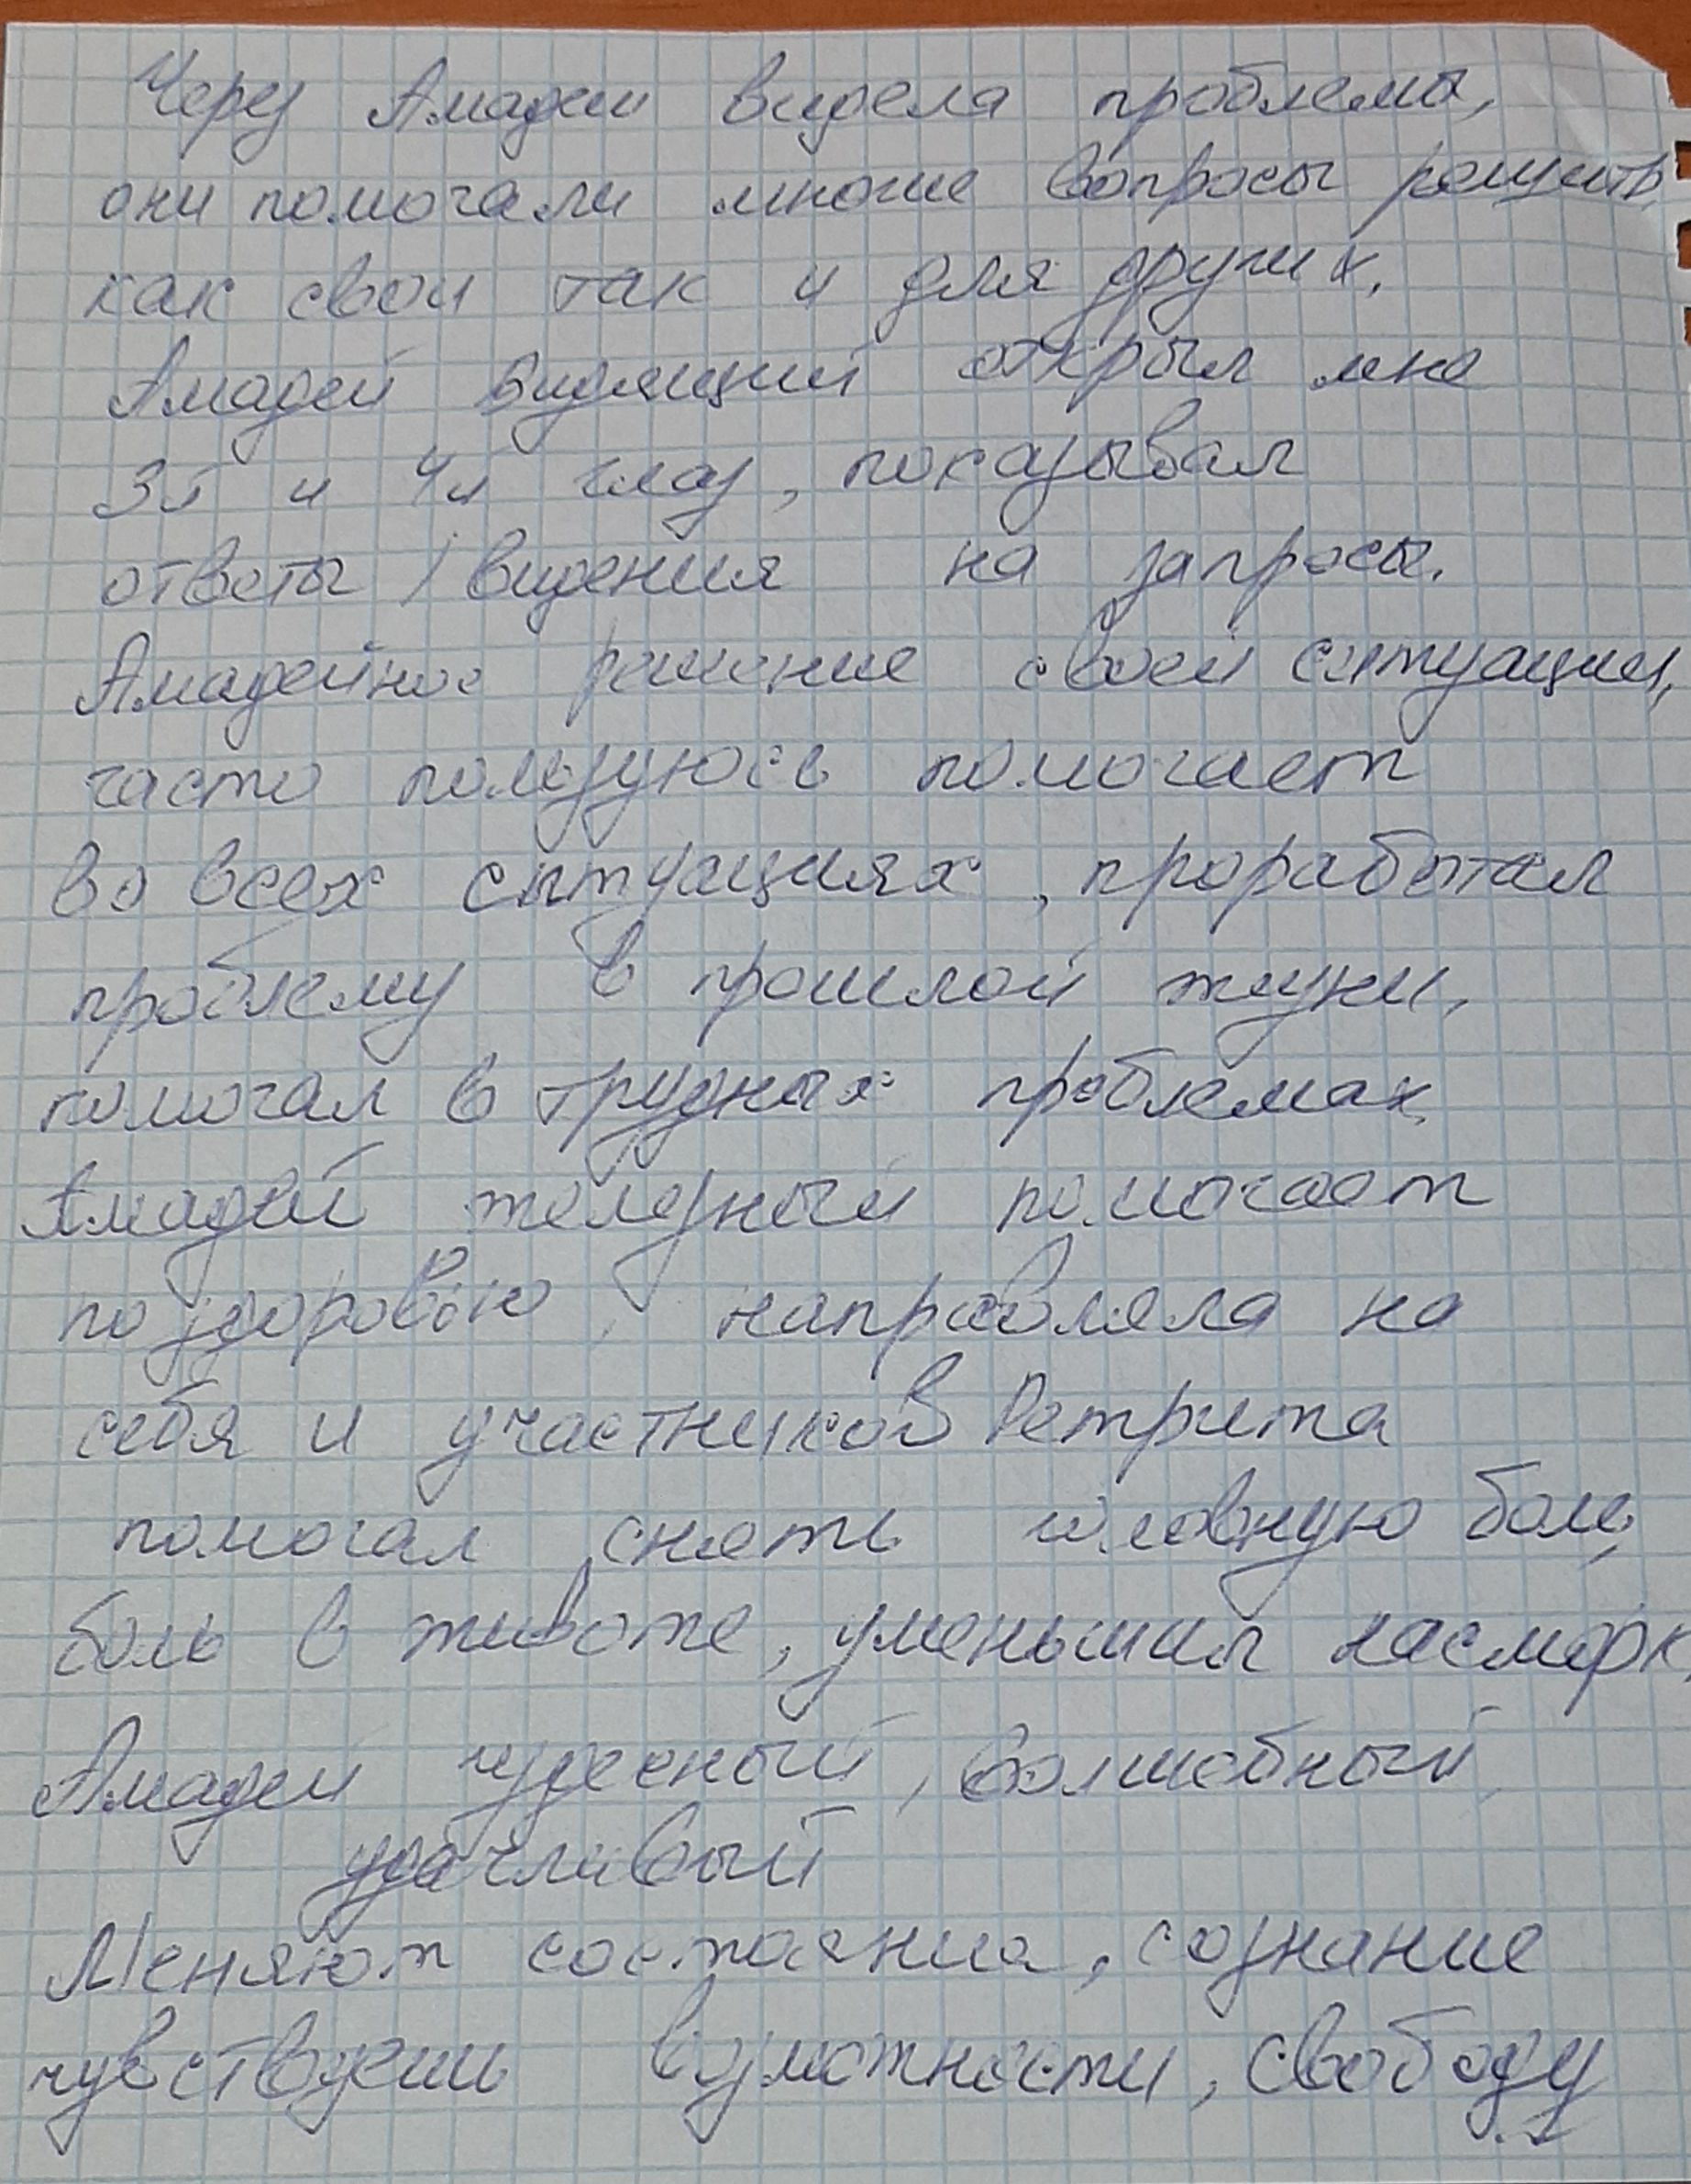 Через Амадеи видела проблемы,
они помогали многие вопросы решить,
как свои так и для других.
Амадей видящий открыл мне
3й и 4й глаз, показывал
ответы / видения на запросы.
Амадейное решение своей ситуации,
часто пользуюсь помогает
во всех ситуациях, проработал
проблему в прошлой жизни,
помогал в трудных проблемах.
Амадей железный помогает
по здоровью, направляла на
себя и участников Ретрита
помогал снять головную боль,
боль в животе, уменьшил насморк.
Амадеи чудесный, волшебный,
удачливый
Меняют состояния, сознание
чувствуеши возможности, свободу